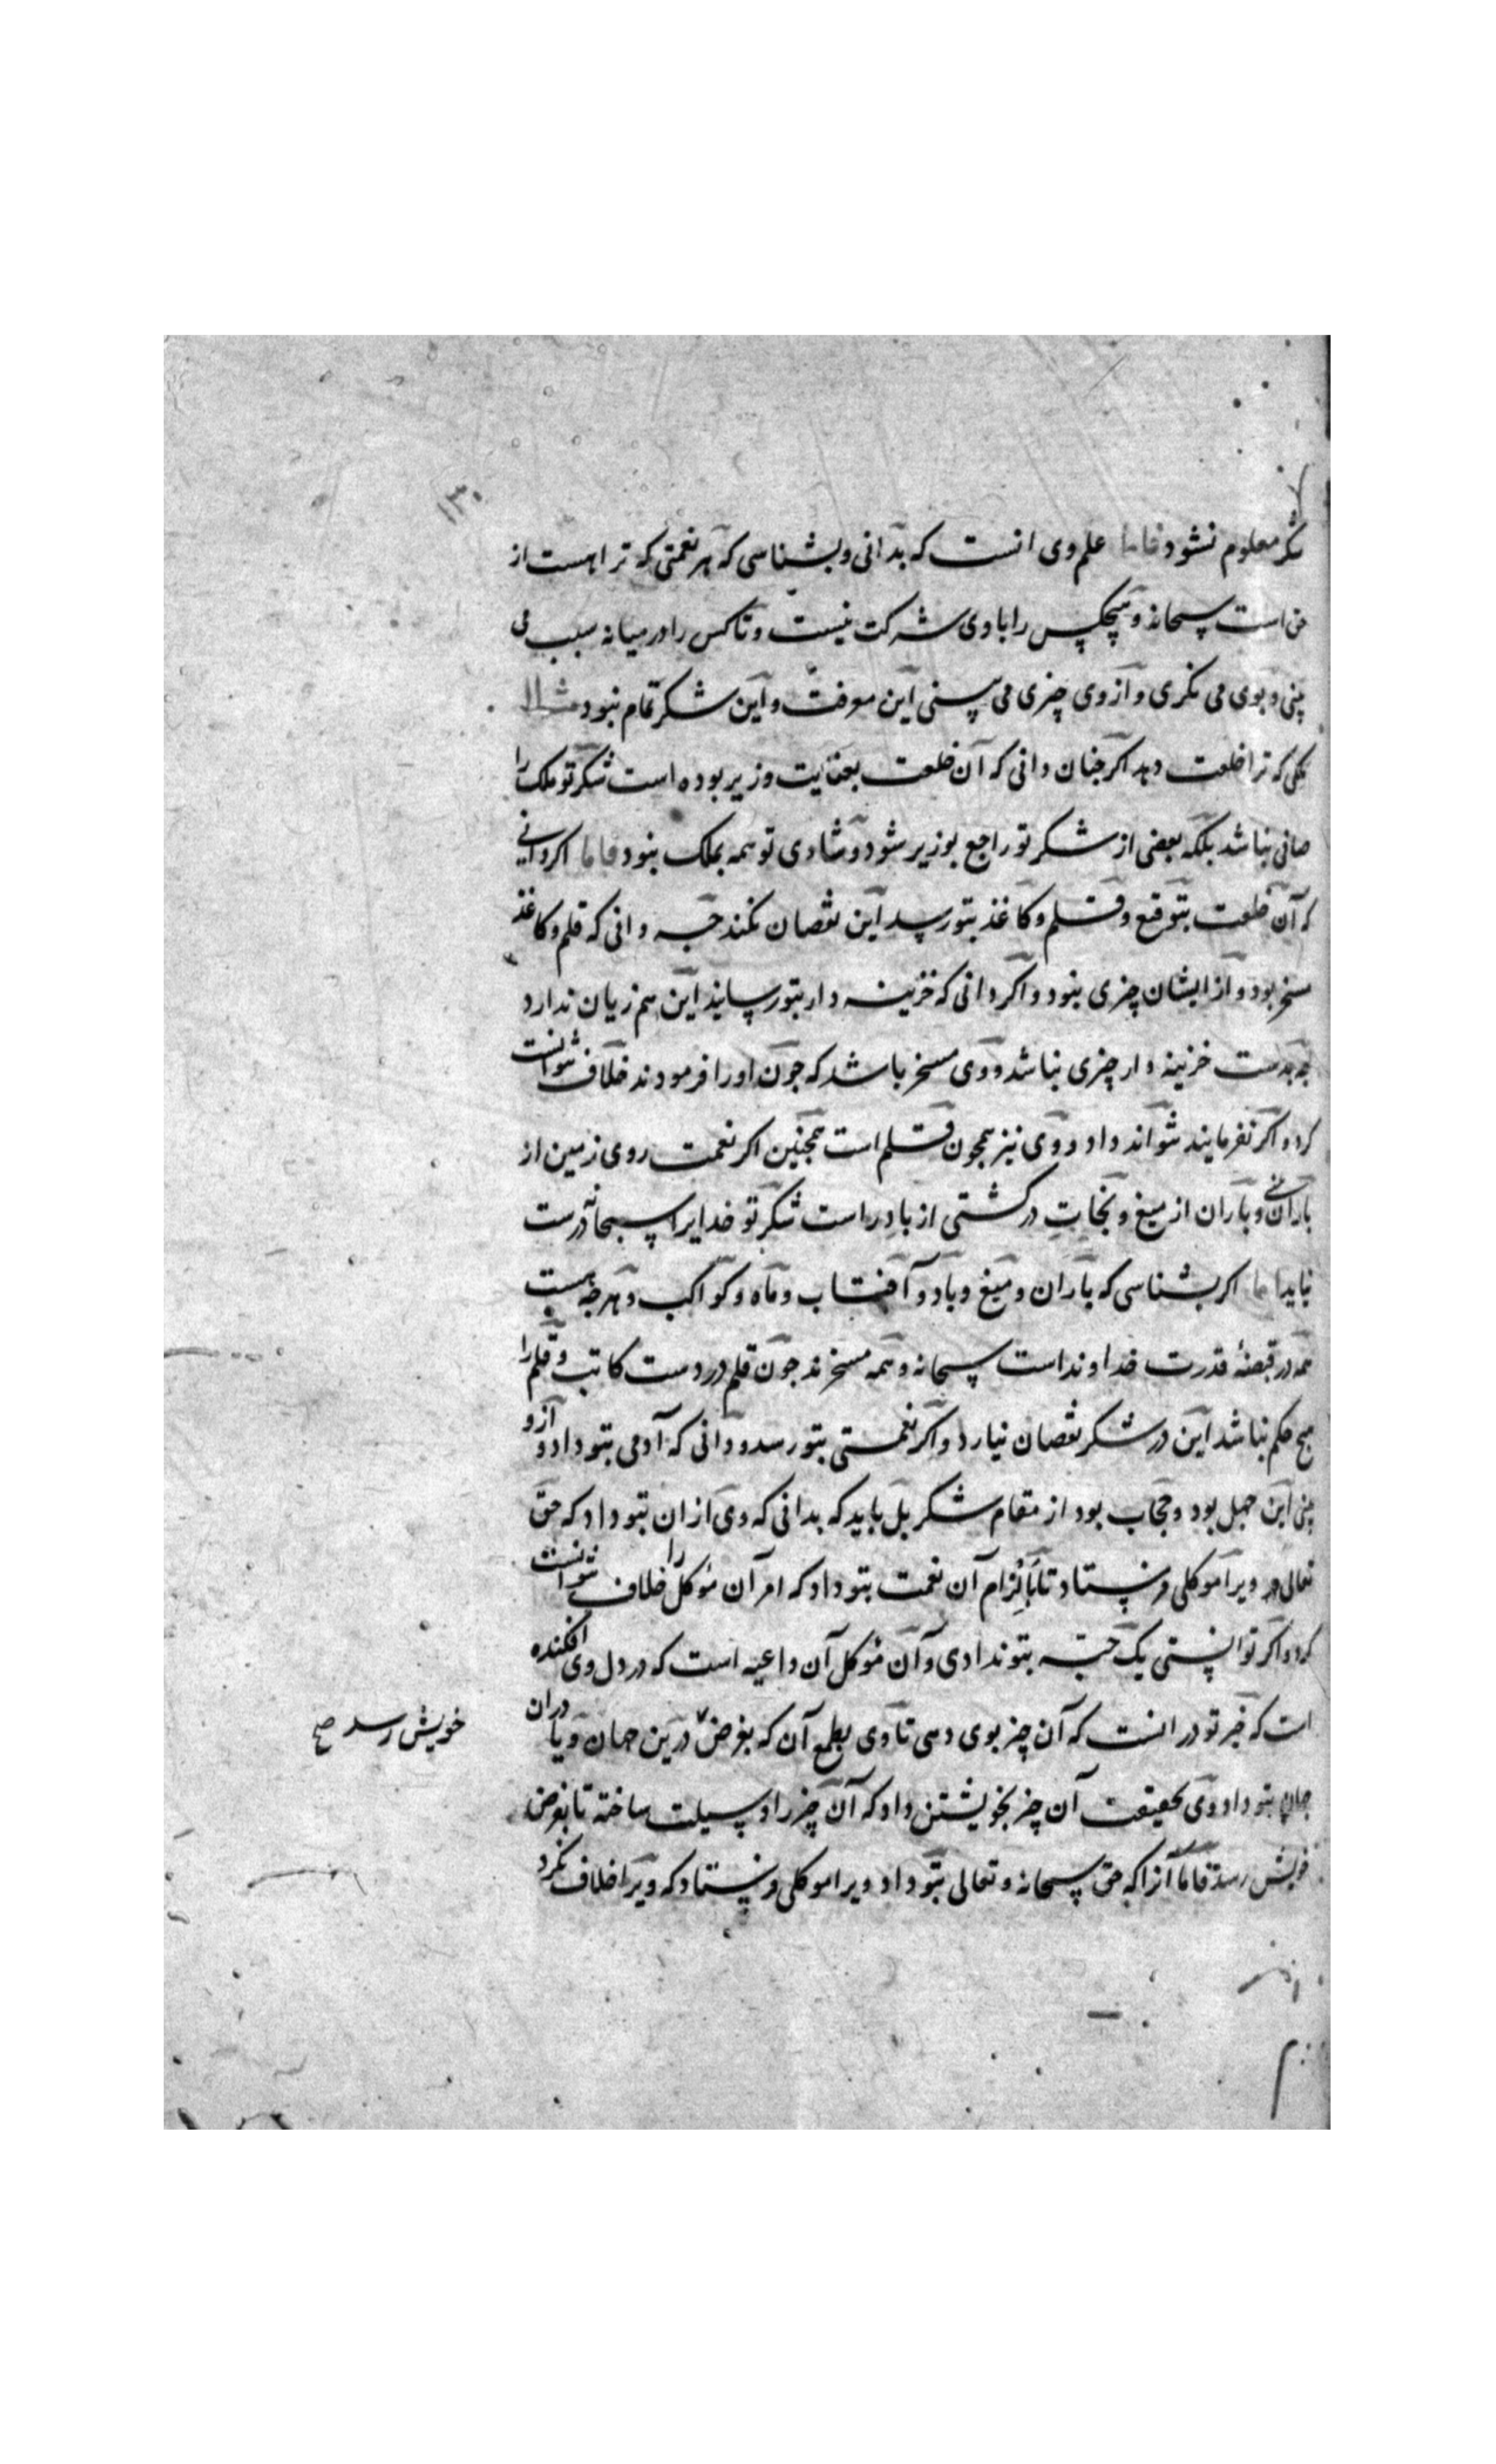 ۱۳۰
شکر معلوم نشود فاما علم وی انست که بدانی و بشناسی که هر نعمتی که ترا هست از
حق است سبحانه و هیچکس را با وی شرکت نیست و تا کس را در میانه سبب می
بینی و بوی می نکری و از وی چیزی می بینی این معرفت و این شکر تمام نبود مثلا
ملکی که ترا خلعت دهد اکر جنان دانی که آن خلعت بعنایت وزیر بوده است شکر تو ملک را
صافی نباشد بلکه بعضی از شکر تو راجع بوزیر شود و شادی تو همه بملک نبود فاما اکر دانی
که آن خلعت بتوقیع و قلم و کاغذ بتو رسد این نقصان نکند جه دانی که قلم و کاغذ
مسخر بود و از ایشان چیزی نبود و اکر دانی که خزینه دار بتو رسانید این هم زیان ندارد
جه بدست خزینه دار چیزی نباشد و وی مسخر باشد که جون او را فرمودند خلاف نتوانست
کرد و اکر نفرمایند نتواند داد و وی نیز همجون قلم است همجنین اکر نعمت روی زمین از
باران دانی و باران از میغ و نجات در کشتی از باد راست شکر تو خدایرا سبحانه درست
نیاید اما اکر بشناسی که باران و میغ و باد و آفتاب و ماه و کواکب و هرجه هست
همه در قبضهٔ قدرت خداونداست سبحانه و همه مسخرند جون قلم در دست کاتب و قلم را
هیج حکم نباشد این در شکر نقصان نیارد و اکر نعمتی بتو رسد و دانی که آدمی بتو داد و از و
بینی این جهل بود و حجاب بود از مقام شکر بل باید که بدانی که وی از ان بتو داد که حق
تعالی ویرا موکلی فرستاد تا بالزام آن نعمت بتو داد که امر آن موکل را خلاف نتوانست
کرد و اکر توانستی یک حبه بتو ندادی و آن موکل آن داعیه است که در دل وی افکنده
است که خیر تو در انست که آن چیز بوی دهی تا وی بطمع آن که بغرض درین جهان و یا دران
جهان بتو داد و وی بحقیقت آن چیز بخویشتن داد که آن چیز را وسیلت ساخته تا بغرض
خویش رسد فاما آنرا که حق سبحانه و تعالی بتو داد ویرا موکلی فرستاد که ویرا خلاف نکرد
خویش رسد صح